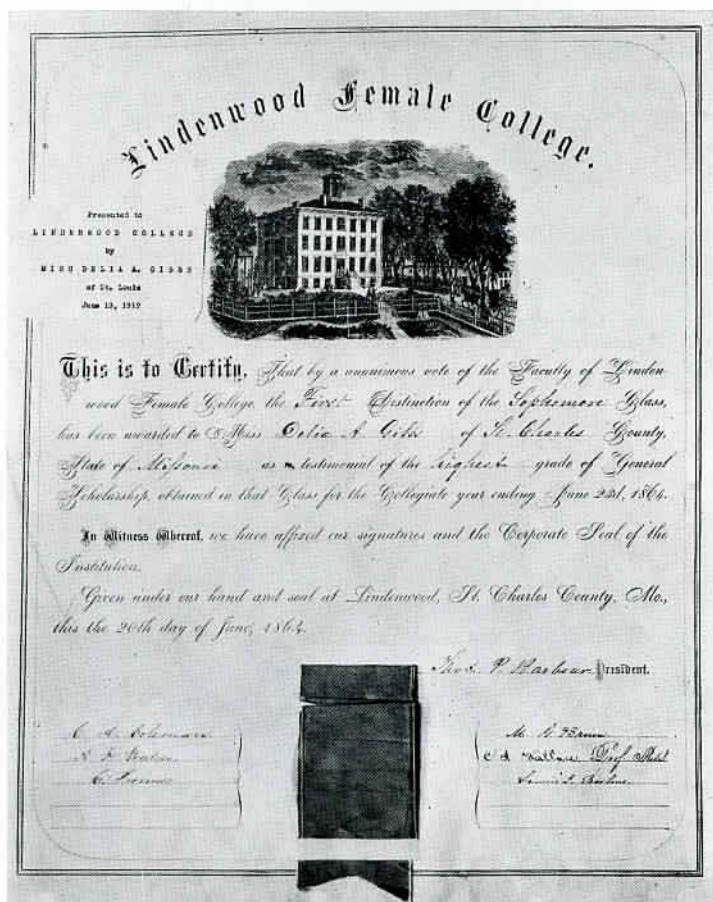 Lindenwood Female College.
Presented to
LINDENWOOD COLLEGE
by
MISS DELIA A. GIBBS
of St. Louis
June 13, 1912
This is to Certify, That by a unanimous vote of the Faculty of Linden
wood Female College, the First Distinction of the Sophomore Class,
has been awarded to Miss Delia A Gibbs of St. Charles County,
State of Missouri as a testimonial of the highest grade of General
Scholarship, obtained in that Class for the Collegiate year ending June 22d, 1864.
In Witness Whereof, we have affixed our signatures and the Corporate Seal of the
Institution.
Given under our hand and seal at Lindenwood, St. Charles County, Mo.,
this the 20th day of June, 1864.
Thos. P. Barbour President.
C A Coleman
M. G.
C A Wallace Prof
Barbour